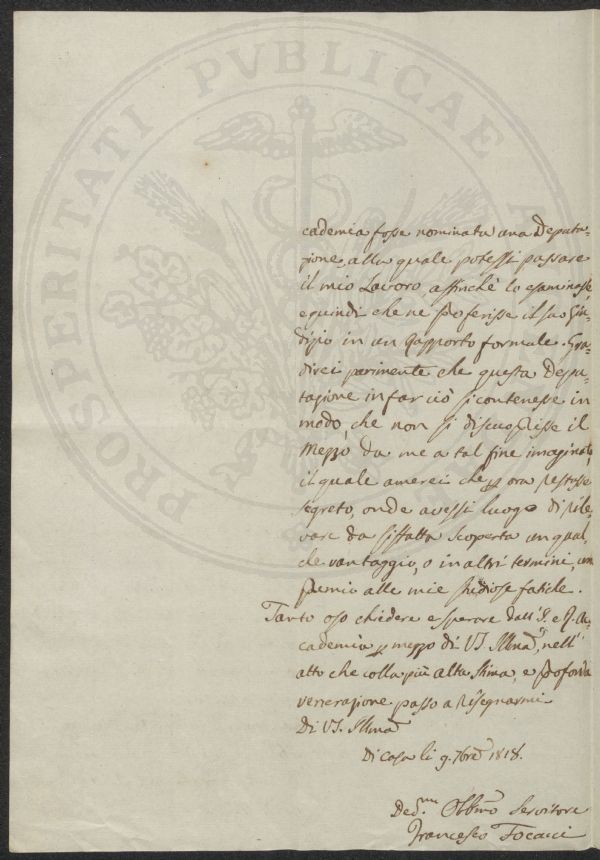 PROSPERITATI PVBLICAE A
cademia fosse nominata una Deputa-
zione, alla quale potessi passare
il mio Lavoro, affinchè lo esaminasse,
e quindi che ne proferisse il suo Giu-
dizio in un Rapporto formale. Gra-
direi parimente che questa Depu-
tazione in far ciò si contenesse in
modo, che non si discuoprisse il
Mezzo da me a tal fine imaginato,
il quale amerei che p ora restasse
segreto, onde avessi luogo di rile-
vare da siffatta scoperta un qual-
che vantaggio, o in altri termini, un
premio alle mie studiose fatiche.
Tanto oso chiedere e sperare dall' I. e R. Ac-
cademia p mezzo di VS. Illma, nell'
atto che colla più alta stima, e profonda
venerazione passo a risegnarmi
Di VS. Illma
Di Casa li 9. 7bre 1818.
Dedmo Obbmo Servitore
Francesco Focacci